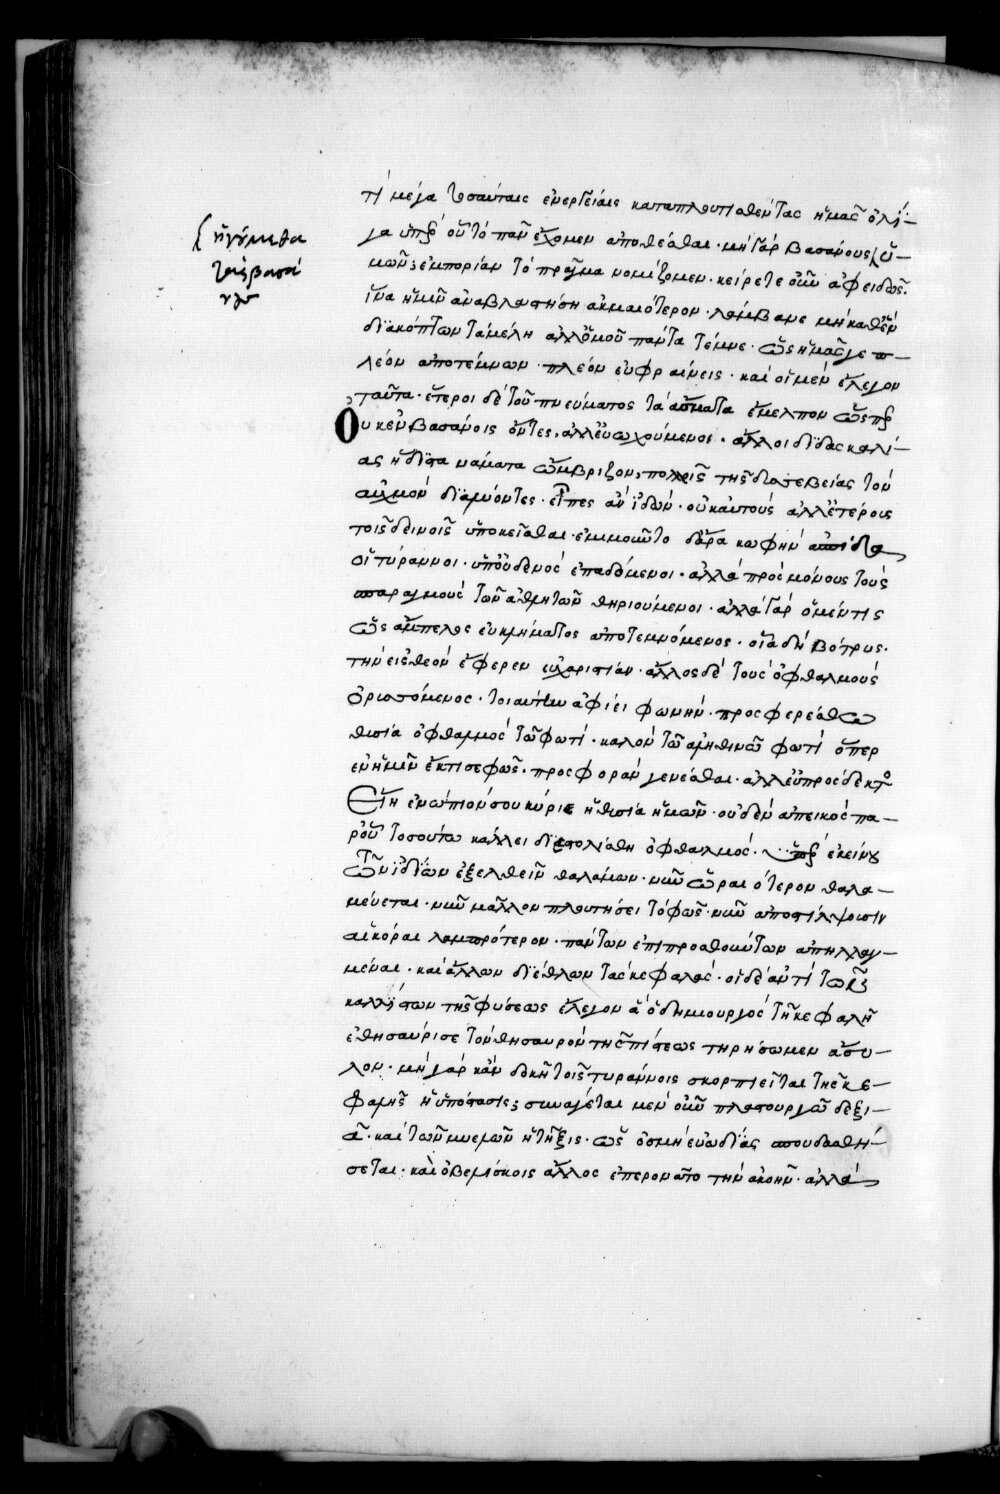 τί μέγα τοσαύταις ἐνεργείαις καταπλουτισθέντας ἡμᾶς ὀλί-
γα ὑπὲρ οὗ τὸ πᾶν ἔχομεν ἀποθέσθαι· μὴ γὰρ βασάνους
ἡγούμεθα
τὰς βασά
νους
ἐμπορίαν τὸ πρᾶγμα νομίζομεν· κείρετε οὖν ἀφειδῶς.
ἵνα ἡμῖν ἀναβλαστήσῃ ἀκμαιότερον· λάμβανε μὴ καθὲν
διακόπτων τὰ μέλη ἀλλ' ὁμοῦ πάντα τέμνε· ὡς ἡμᾶς γε π-
λέον ἀποτέμνων· πλέον εὐφραίνεις· καὶ οἱ μὲν ἔλεγον
ταῦτα· ἕτεροι δὲ τοῦ πνεύματος τὰ ᾄσματα ἔμελπον ὥσπερ
Οὐκ ἐν βασάνοις ὄντες, ἀλλ' εὐωχούμενοι· ἄλλοι διδασκαλί-
ας ἥδιστα νάματα ὤμβριζον, πολλοῖς τῆς δυσσεβείας τὸν
αὐχμὸν διαμύοντες· εἶπες ἂν ἰδών· οὐκ αὐτοὺς ἀλλ' ἑτέρους
τοῖς δεινοῖς ὑποκεῖσθαι· ἐμιμοῦντο δ' ἄρα κωφὴν ἀσπίδα
οἱ τύραννοι· ὑπ' οὐδενὸς ἐπαδόμενοι· ἀλλὰ πρὸς μόνους τοὺς
σπαραγμοὺς τῶν ἀθλητῶν θηριούμενοι· ἀλλὰ γὰρ ὁ μέν τις
ὡς ἄμπελος εὐκλήματος ἀποτεμνόμενος· οἷα δὴ βότρυς·
τὴν εἰς θεὸν ἔφερεν εὐχαριστίαν· ἄλλος δὲ τοὺς ὀφθαλμοὺς
ὀρυττόμενος· τοιαύτην ἀφίει φωνήν· προσφερέσθω
θυσία ὀφθαλμὸς τῷ φωτί· καλὸν τῷ ἀληθινῷ φωτὶ ὅπερ
ἐν ἡμῖν ἔκτισε φῶς· προσφορὰν γενέσθαι· ἀλλ' εὐπρόσδεκτος
Εἴη ἐνώπιόν σου κύριε ἡ θυσία ἡμῶν· οὐδὲν ἀπεικὸς πα-
ρ' οὗ τοσούτῳ κάλλει διεστολίσθη ὀφθαλμός· ὑπὲρ ἐκείνου
τῶν ἰδίων ἐξελθεῖν θαλάμων· νῦν ὡραιότερον θαλα-
μεύεται· νῦν μᾶλλον πλουτήσει τὸ φῶς· νῦν ἀποστίλψουσιν
αἱ κόραι λαμπρότερον· πάντων ἐπιπροσθούντων ἀπηλλαγ-
μέναι· καὶ ἄλλων διέθλων τὰς κεφαλάς· οἱ δὲ ἀντὶ τῶν
καλλίστων τῆς φύσεως ἔλεγον ἃ ὁ δημιουργὸς τῇ κεφαλῇ
ἐθησαύρισε τὸν θησαυρὸν τῆς πίστεως τηρήσωμεν ἄσυ-
λον· μὴ γὰρ κἂν δοκῇ τοῖς τυράννοις σκορπιεῖται τῆς κε-
φαλῆς ἡ ὑπόστασις; συναγέται μὲν οὖν πλαστουργῷ δεξι-
ᾷ· καὶ τῶν μυελῶν ἡ τῆξις· ὡς ὀσμὴ εὐωδίας σπουδασθή-
σεται· καὶ ὀβελίσκοις ἄλλος ἐπερονᾶτο τὴν ἀκοήν· ἀλλὰ